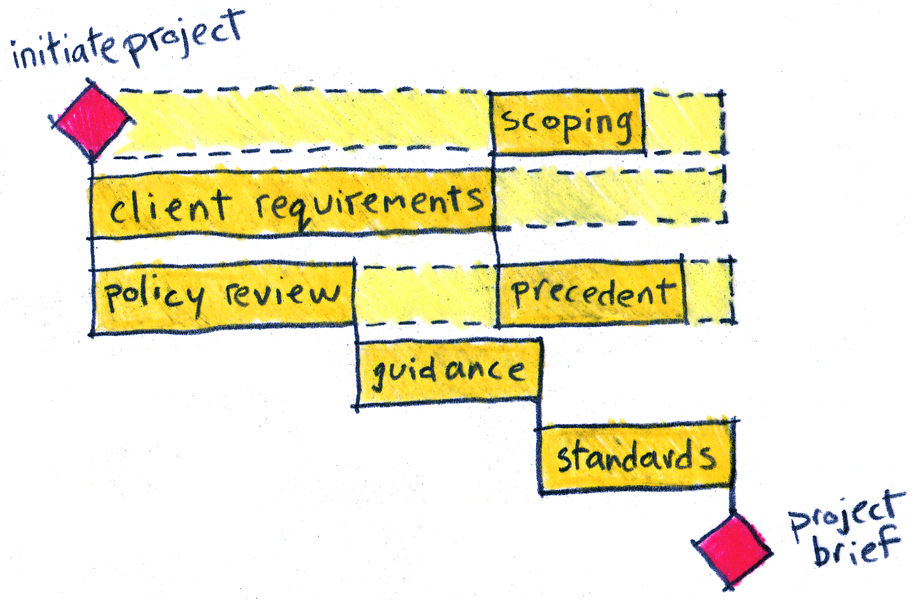 initiate project
scoping
client requirements
policy review
precedent
guidance
standards
project
brief